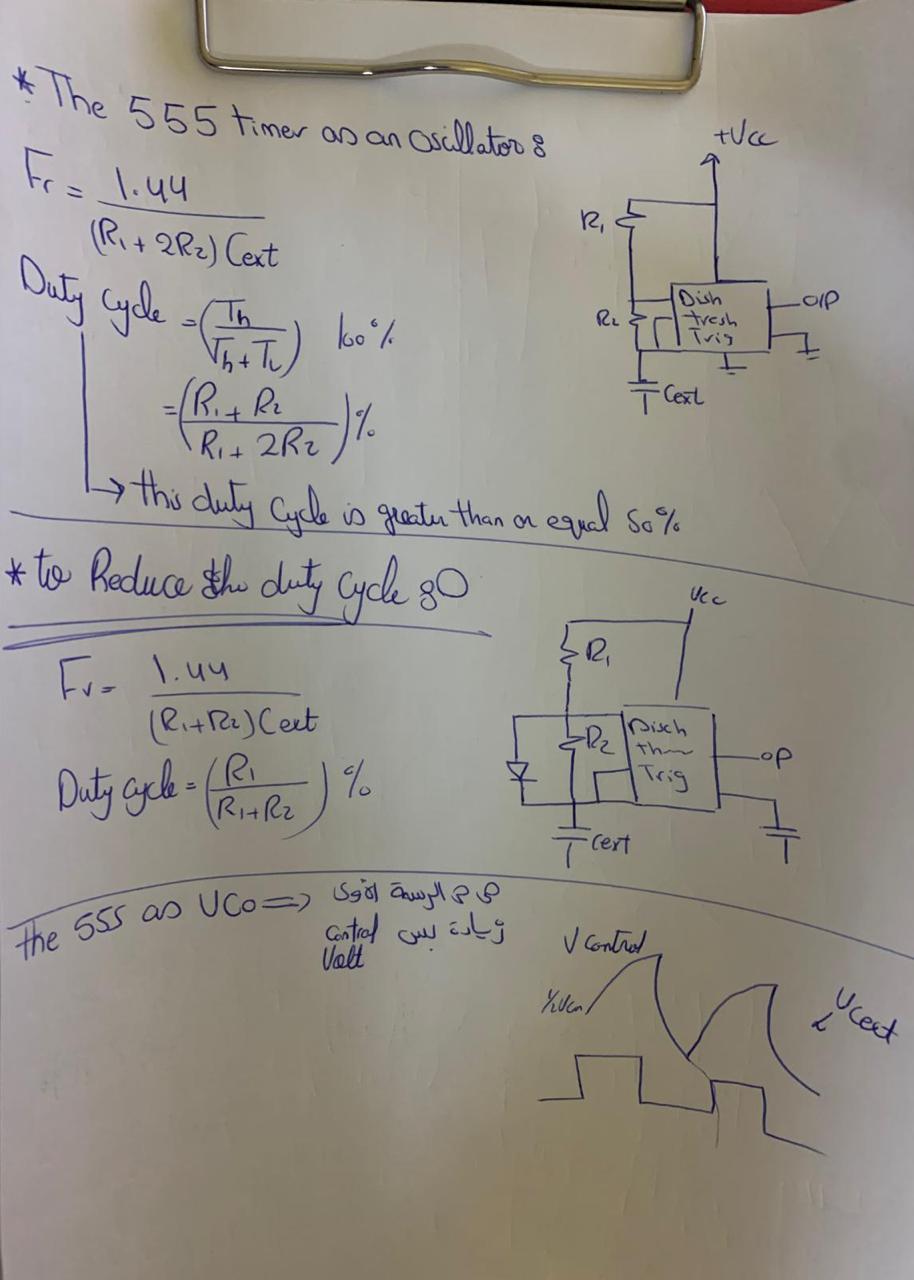 * The 555 timer as an oscillator :
Fr = 1.44 / (R1 + 2R2) Cext
Duty cycle = (Th / Th + TL) 100%
= (R1 + R2 / R1 + 2R2) %
→ this duty cycle is greater than or equal 50%
+Vcc
R1
R2
Dish
tresh
Trig
O/P
Cext
* to Reduce the duty cycle :
Fr = 1.44 / (R1+R2) Cext
Duty cycle = (R1 / R1+R2) %
Vcc
R1
R2
Disch
th
Trig
OP
Cext
the 555 as VCO => الرسمة
زيادة بس Control
Volt
V Control
½Vcn
Vcext